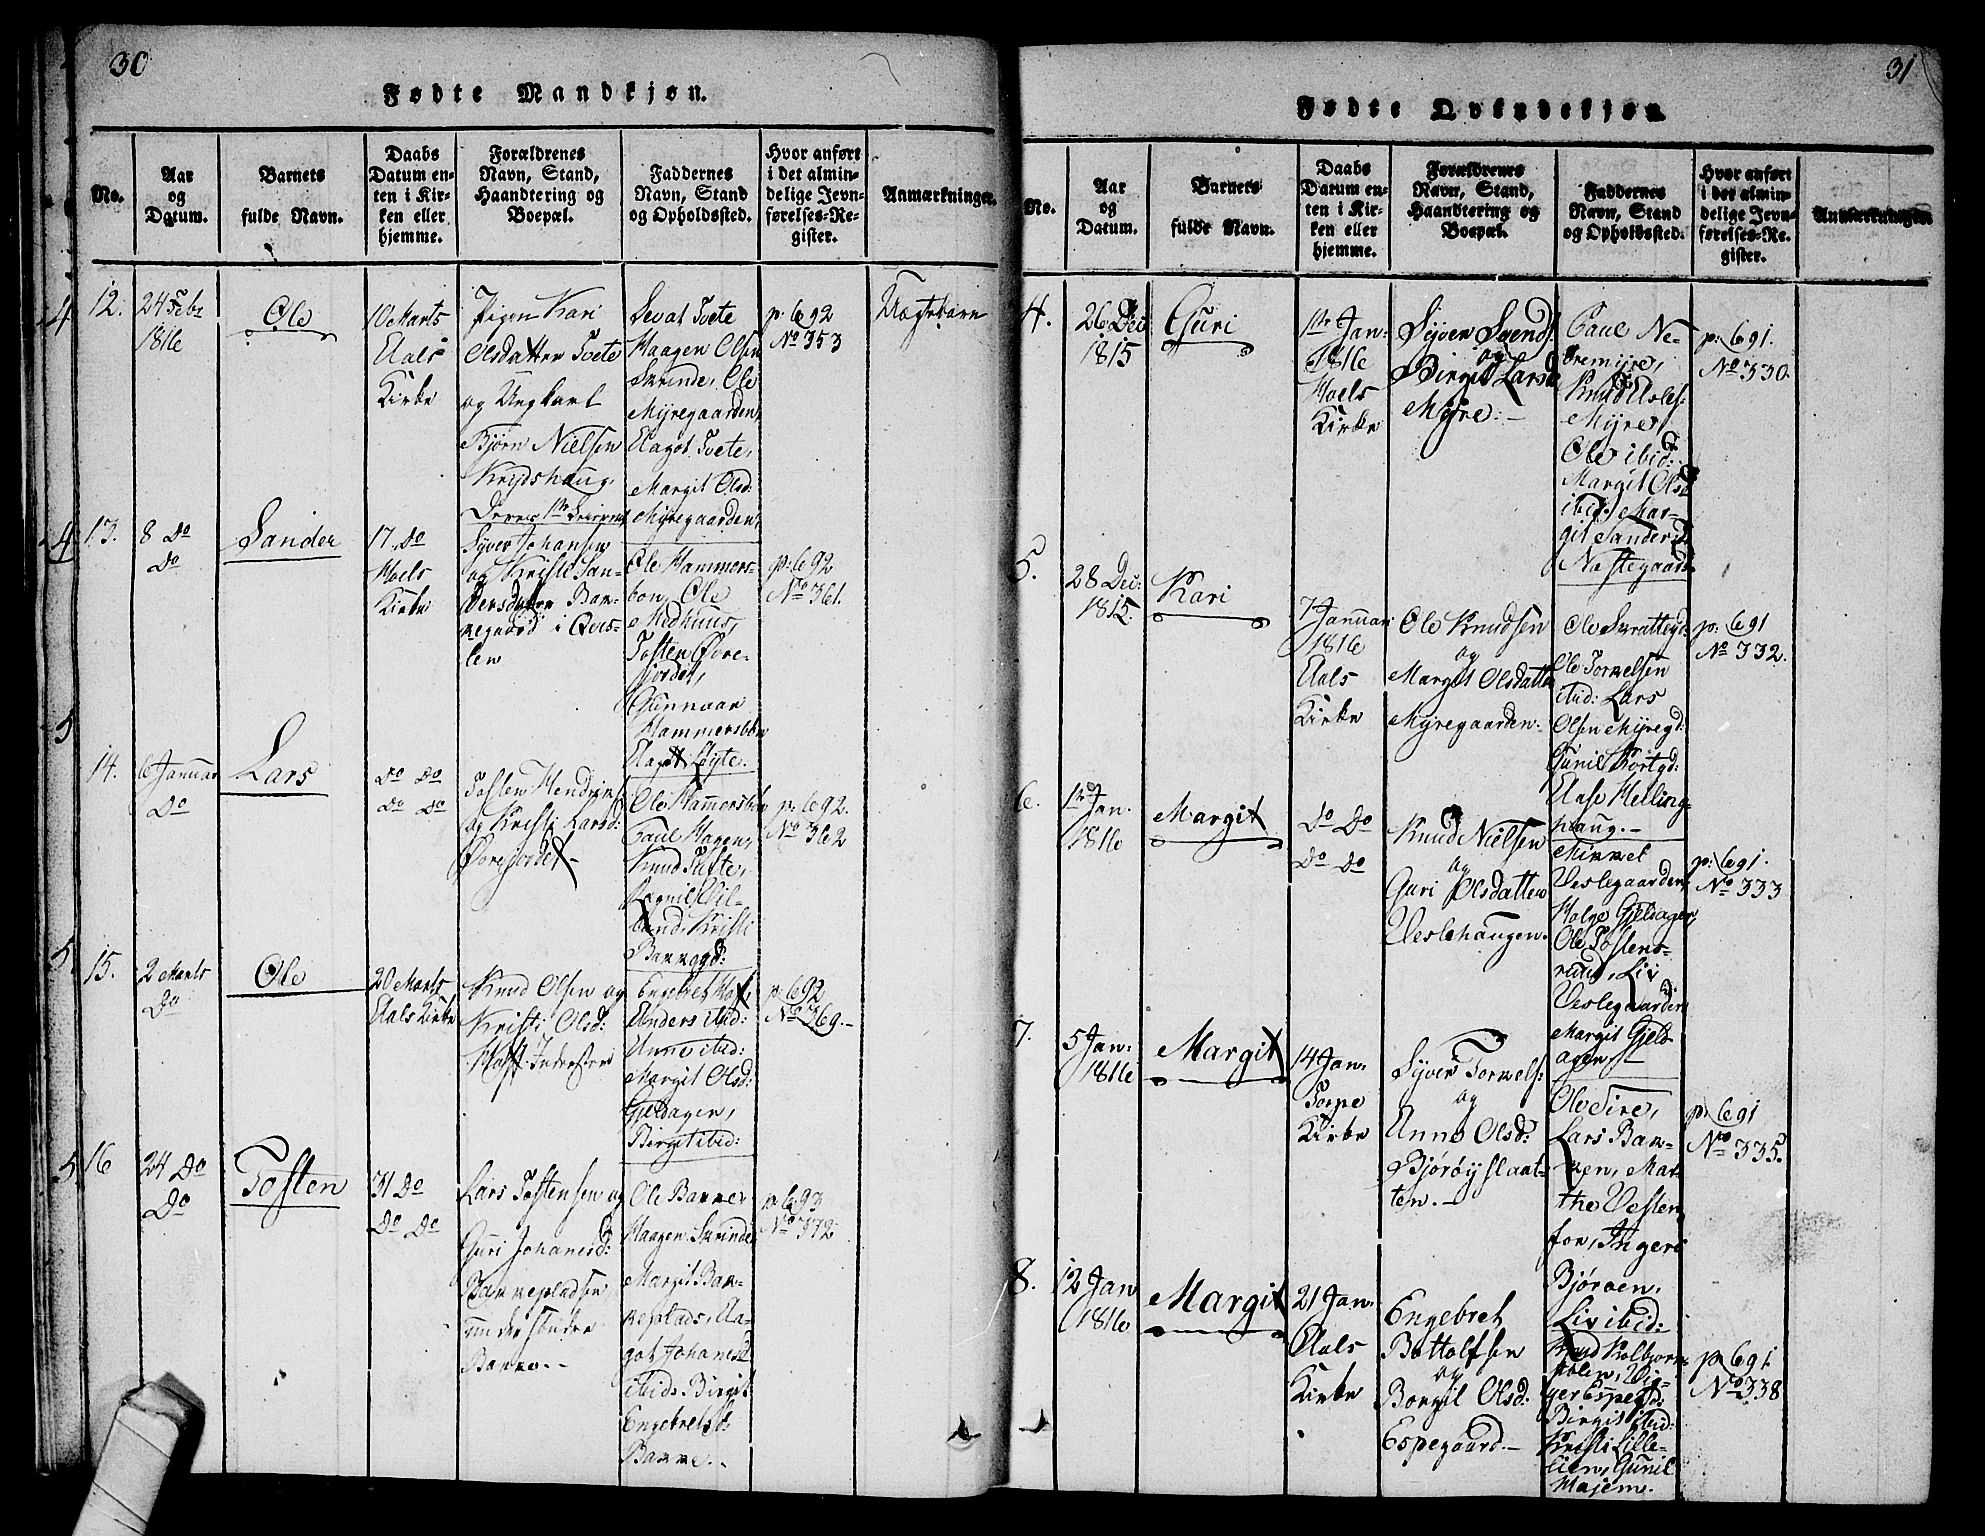 30
Fødte Mandkjøn.
No.
Aar
og
Datum.
Barnets
fulde Navn.
Daabs
Datum en-
ten i Kir-
ken eller
hjemme.
Forældrenes
Navn, Stand,
Haandtering og
Boepæl.
Faddernes
Navn, Stand
og Opholdssted.
Hvor anført
i det almin-
delige Jevn-
førelses-Re-
gister.
Anmærkninger.
12.
24 Febr
1816
Ole
10 Marts
Aals
Kirke
Pigen Kari
Olsdatter Tvete
og Ungkarl
Bjørn Nielsen
Krydshaug.
Deres 1te
Sevat Tvete
Haagen Olsen
Skrinde, Ole
Myregaarden,
Aagot Tvete,
Margit Olsd:
Myregaarden,
p. 692
No 353
Uægtebarn
13.
8 Do
Do
Sander
17 Do
Hoels
Kirke
Syver Johansen
og Kristi San-
dersdatter Bak-
kegaard i Qvis-
len
Ole Hammers-
bøn, Ole
Medhuus,
Tosten Øvre-
jordet,
Gunnaar
Hammersbøn
Aagot Løyte.
p: 692
No 361.
14.
6 Januar
Do
Lars
Do Do
Do Do
Tosten Hendriks:
og Kristi Larsd:
Øvrejordet –
Ole Hammersbøn
Paul Hagen,
Knud Tufte,
Ragnil Vil-
land, Kristi
Bakkegd:
p: 692.
No 362
15.
2 Marts
Do
Ole
20 Marts
Aals Kirke
Knud Olsen og
Kristi Olsd:
Engebret
Anders ibid:
Anne ibid:
Margit Olsd:
Gjeldagen,
Birgit ibid:
p: 692
No 369.–
16
24 Do
Do
Tosten
31 Do
Do Do
Lars Tostensen og
Guri Johanisd:
Bakkepladsen
under
Bakke.–
Ole Bakke
Haagen Skrinde
Margit Bak-
keplads, Aa-
got Johanisd
ibid. Birgit
Engebretsd:
Bakke.–
p: 693
No 372.
31
Fødte Qvindekjøn.
No.
Aar
og
Datum.
Barnets
fulde Navn.
Daabs
Datum en-
ten i Kir-
ken eller
hjemme.
Forældrenes
Navn, Stand,
Haandtering og
Boepæl.
Faddernes
Navn, Stand
og Opholdssted.
Hvor anført
i det almin-
delige Jevn-
førelses-Re-
gister.
Anmærkninger
4.
26 Dec
1815
Guri
1te Jan:
1816
Hoels
Kirke
Syver Svends:
og
Birgit Larsd
Myre. –
Paul Ne-
dremyre,
Knud
Myre,
Ole ibid:
Margit Olsd
ibid. Mar-
git Sandersd
Nestegaard.
p: 691.
No 330.
5.
28 Dec:
1815.
Kari
7 Januari
1816
Aals
Kirke
Ole Knudsen
og
Margit Olsdatter
Myregaarden.
Ole Skrattegd:
Ole Torkelsen
ibid: Lars
Olsen Myregd:
Gunil Kortgd:
Aase Helling-
haug.–
p: 691
No 332.
6.
1te Jan.
1816
Margit
Do Do
Do Do
Knud Nielsen
og
Guri Olsdatter
Veslehaugen.
Mikkel
Veslegaarden,
Helge Gjeldager,
Ole Tostens-
rud, Liv
Veslegaarden
Margit Gjeld-
agen. –
p: 691.
No 333
7.
5 Jan:
1816
Margit
14 Jan.
Torpe
Kirke
Syver Torkels:
og
Anne Olsd:
Bjørøyslaat-
ten. –
Ole Sire,
Lars Bak-
ken, Mar-
the Vesten-
for, Ingeri
Bjøroen,
Liv ibid:
p: 691
No 335.
8.
12 Jan
1816
Margit
21 Jan.
Aals
Kirke
Engebret
Bottolfsen
og
Borgil Olsd:
Espegaard.–
Knud Kolbjørns-
Birgit ibid:
Kristi Lille-
lien, Gunil
Majem.
p 691
No 338